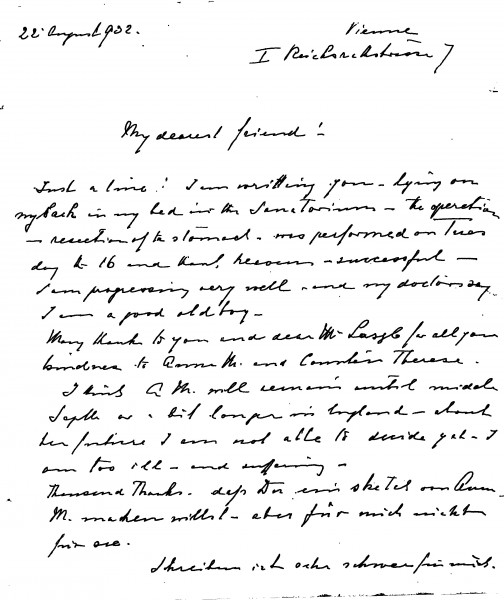 22 August 1932.
Vienna
I Reichsratsstrasse 7
My dearest friend!
Just a line! I am writting you - lying on
my back in my bed in the Sanatorium - the operation
- resection of the stomach - was performed on Tues
day the 16 and thank heavens - successful -
I am progressing very well - and my doctors say.
I am a good old boy -
Many thanks to you and dear Mrs Laszlo for all your
kindness to Anne M. and Countess Therese.
I think A M. will remain until middle
Septbr or a bit longer in England - about
her future I am not able to decide yet - I
am too ill - and suffering -
Thousand Thanks - dass Du ein sketch von Anne
M. machen willst - aber für mich nicht
für sie.
Schreiben ist sehr schwer für mich.